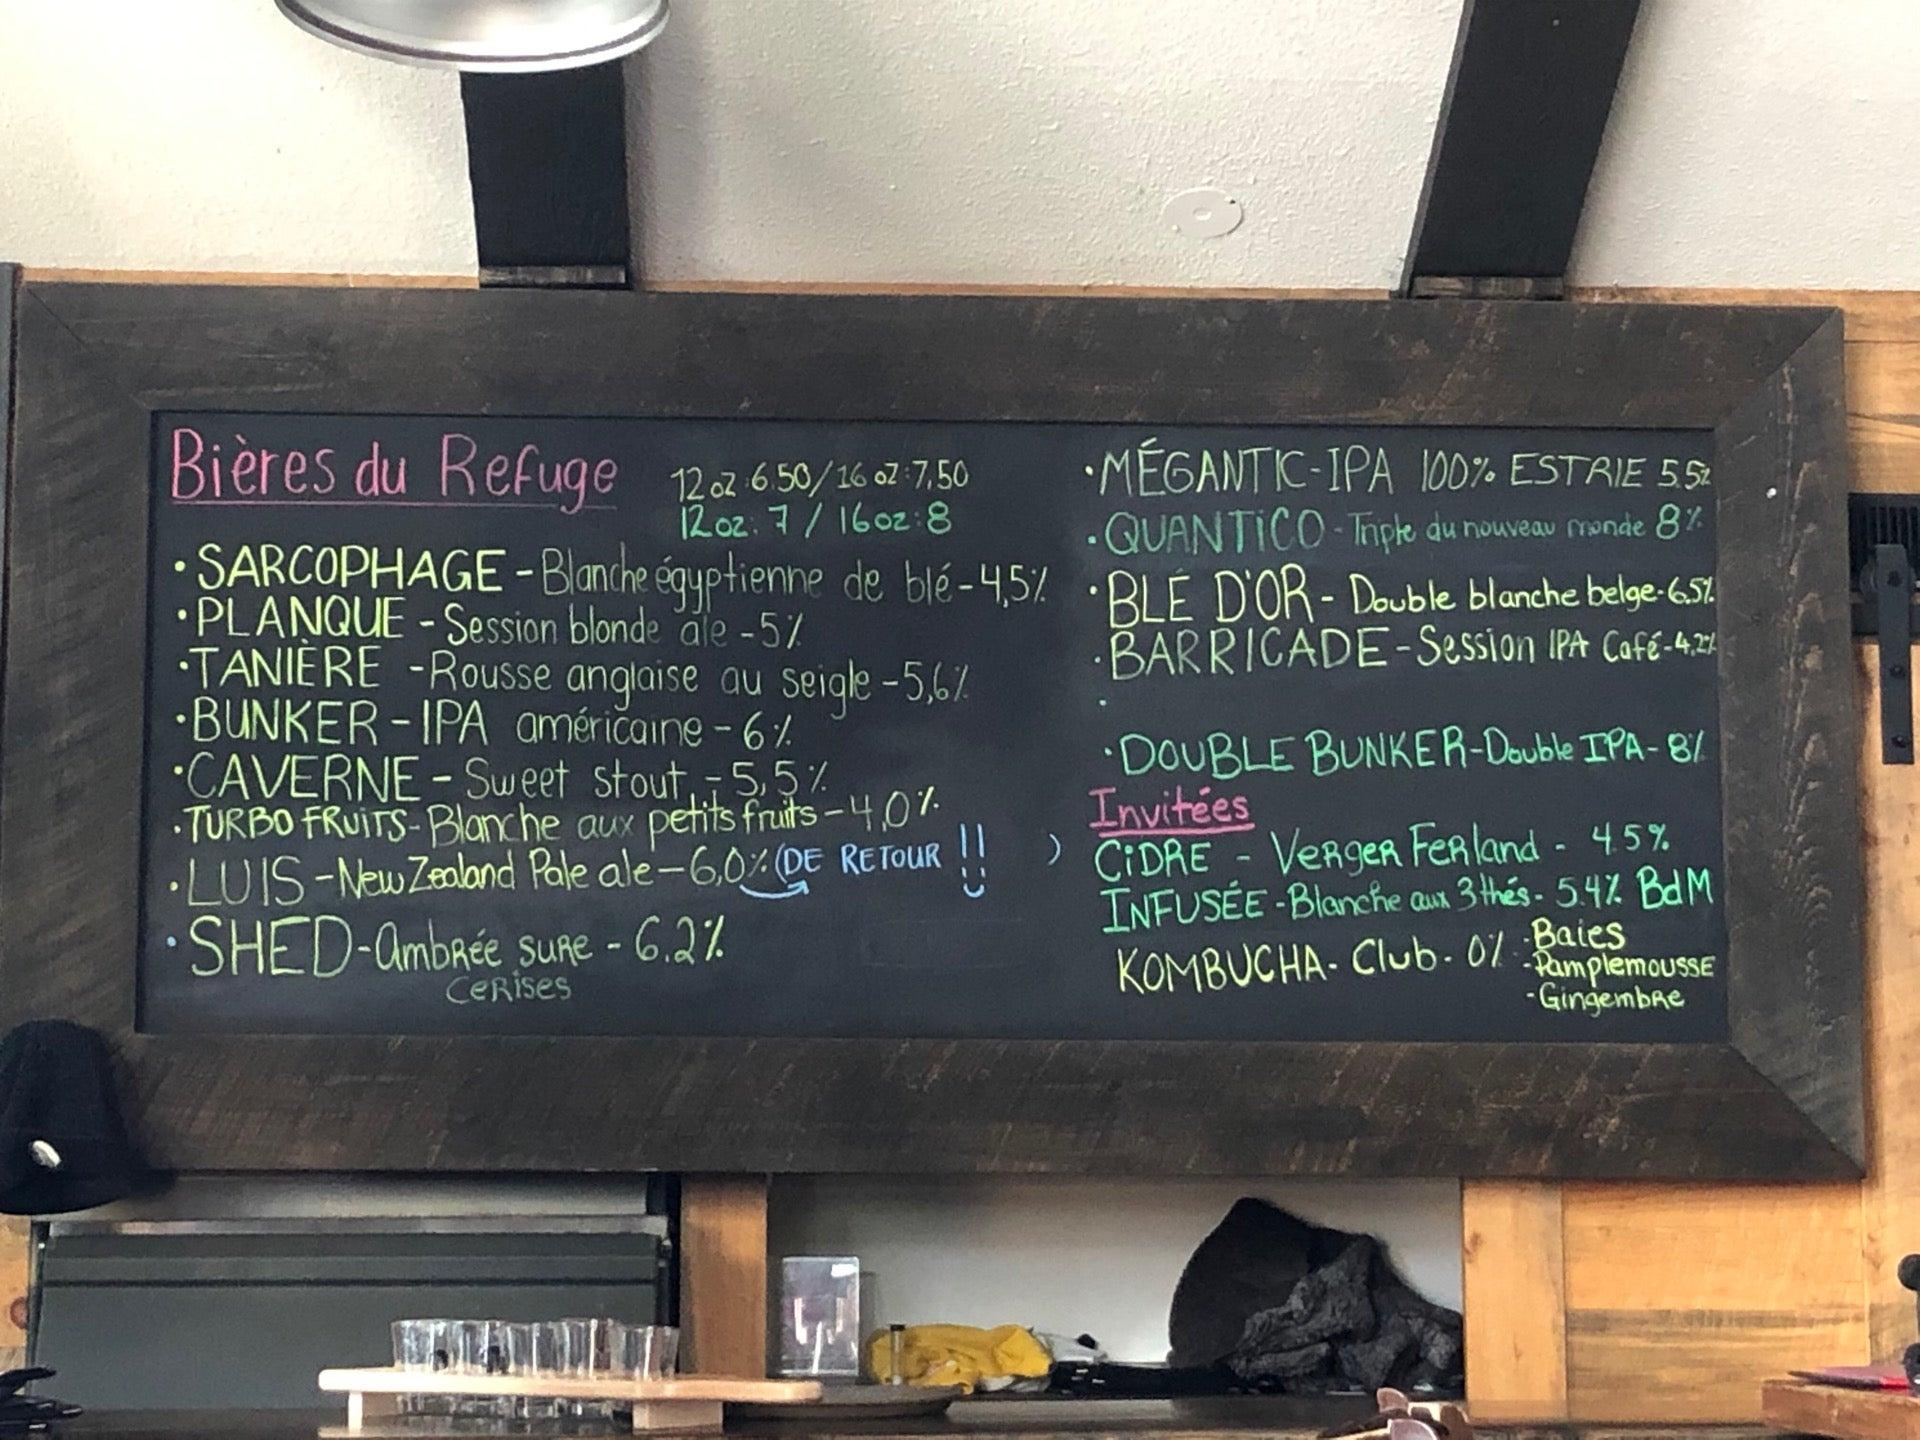 Bières du Refuge
12 oz: 6.50 / 16 oz: 7,50
12 oz: 7 / 16 oz: 8
• SARCOPHAGE - Blanche égyptienne de blé - 4,5%
• PLANQUE - Session blonde ale - 5%
• TANIÈRE - Rousse anglaise au seigle - 5,6%
• BUNKER - IPA américaine - 6%
• CAVERNE - Sweet stout - 5,5%
• TURBO FRUITS - Blanche aux petits fruits - 4,0%
• LUIS - New Zealand Pale ale - 6,0% (DE RETOUR !! )
• SHED - Ambrée sure - 6.2%
cerises
• MÉGANTIC - IPA 100% ESTRIE 5.5%
• QUANTICO - Triple du nouveau monde 8%
• BLÉ D'OR - Double blanche belge - 6.5%
• BARRICADE - Session IPA Café - 4.2%
•
• DOUBLE BUNKER - Double IPA - 8%
Invitées
CIDRE - Verger Ferland - 4.5%
INFUSÉE - Blanche aux 3 thés - 5.4% BdM
KOMBUCHA - Club - 0% - Baies
- Pamplemousse
- Gingembre